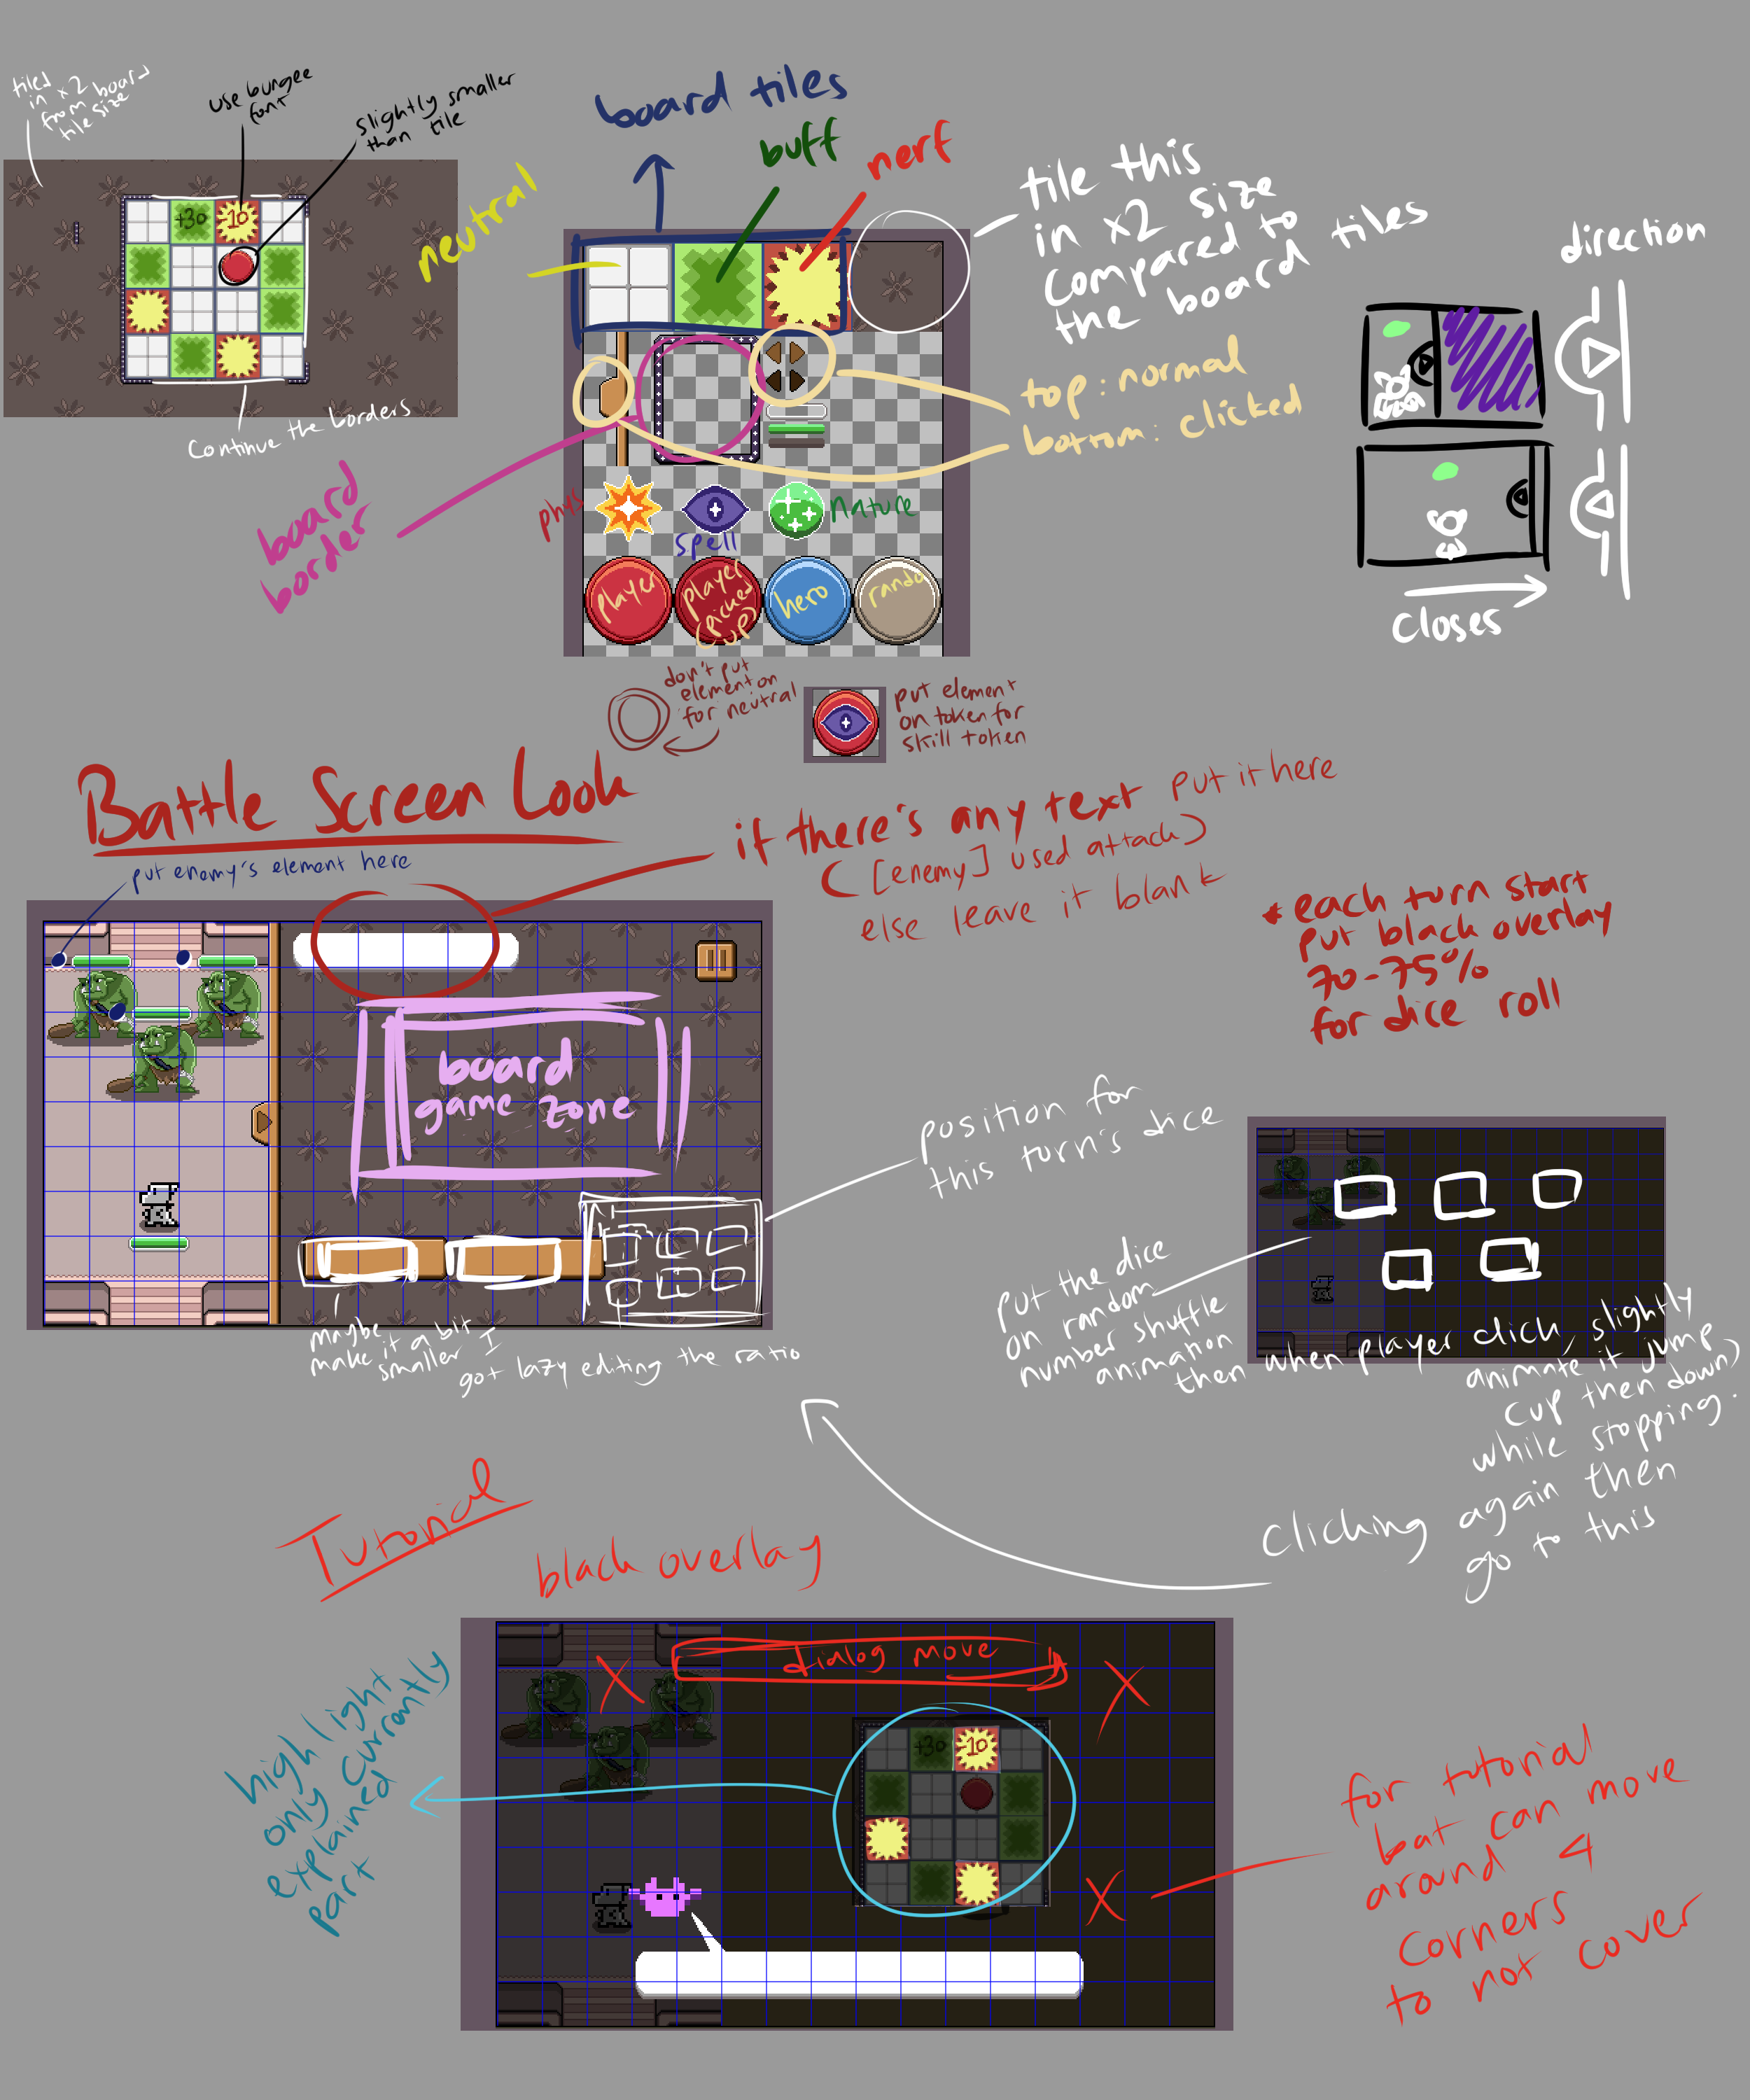 tiled
in x2 board
from
tile size
use bungee
font
slightly smaller
than tile
+30
10
Continue the borders
board tiles
buff
nerf
neutral
tile this
in x2 size
compared to
the board tiles
top: normal
bottom: clicked
board
border
phys
spell
nature
player
player
(picked
up)
hero
rando
don't put
element on
for neutral
put element
on token for
skill token
direction
closes
Battle Screen Look
put enemy's element here
if there's any text put it here
([enemy] used attack)
else leave it blank
* each turn start
put black overlay
70-75%
for dice roll
board
game zone
position for
this turn's dice
maybe
make it a bit
smaller I
got lazy editing the ratio
put the dice
on random
number shuffle
animation
then when player click, slightly
animate it jump
(up then down)
while stopping.
Clicking again then
go to this
Tutorial
black overlay
dialog move
+30
-10
highlight
only currently
explained
part
for tutorial
bat can move
around 4
corners
to not cover